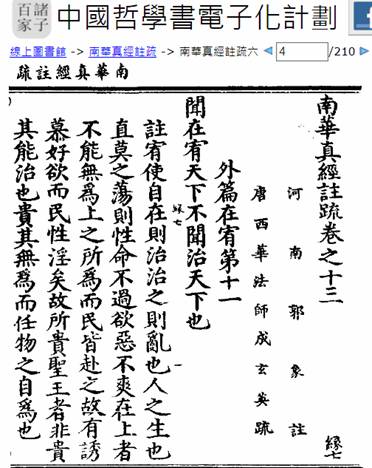 諸子
百家
中國哲學書電子化計劃
線上圖書館 -> 南華真經註疏 -> 南華真經註疏六
4
/210
南華真經註疏
南華真經註疏卷之十三
河南郭象註
唐西華法師成玄英疏
外篇在宥第十一
聞在宥天下不聞治天下也
註宥使自在則治治之則亂也人之生也
直莫之蕩則性命不過欲惡不爽在上者
不能無爲上之所爲而民皆赴之故有誘
慕好欲而民性淫矣故所貴聖王者非貴
其能治也貴其無爲而任物之自爲也